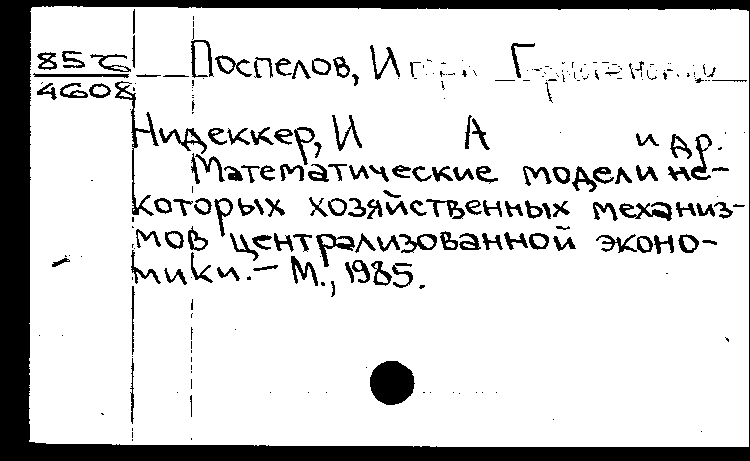 85б Поспелов, Игорь
4608
Нидеккер, И А и др.
Математические модели не-
которых хозяйственных механиз-
мов централизованной эконо-
мики. – М., 1985.